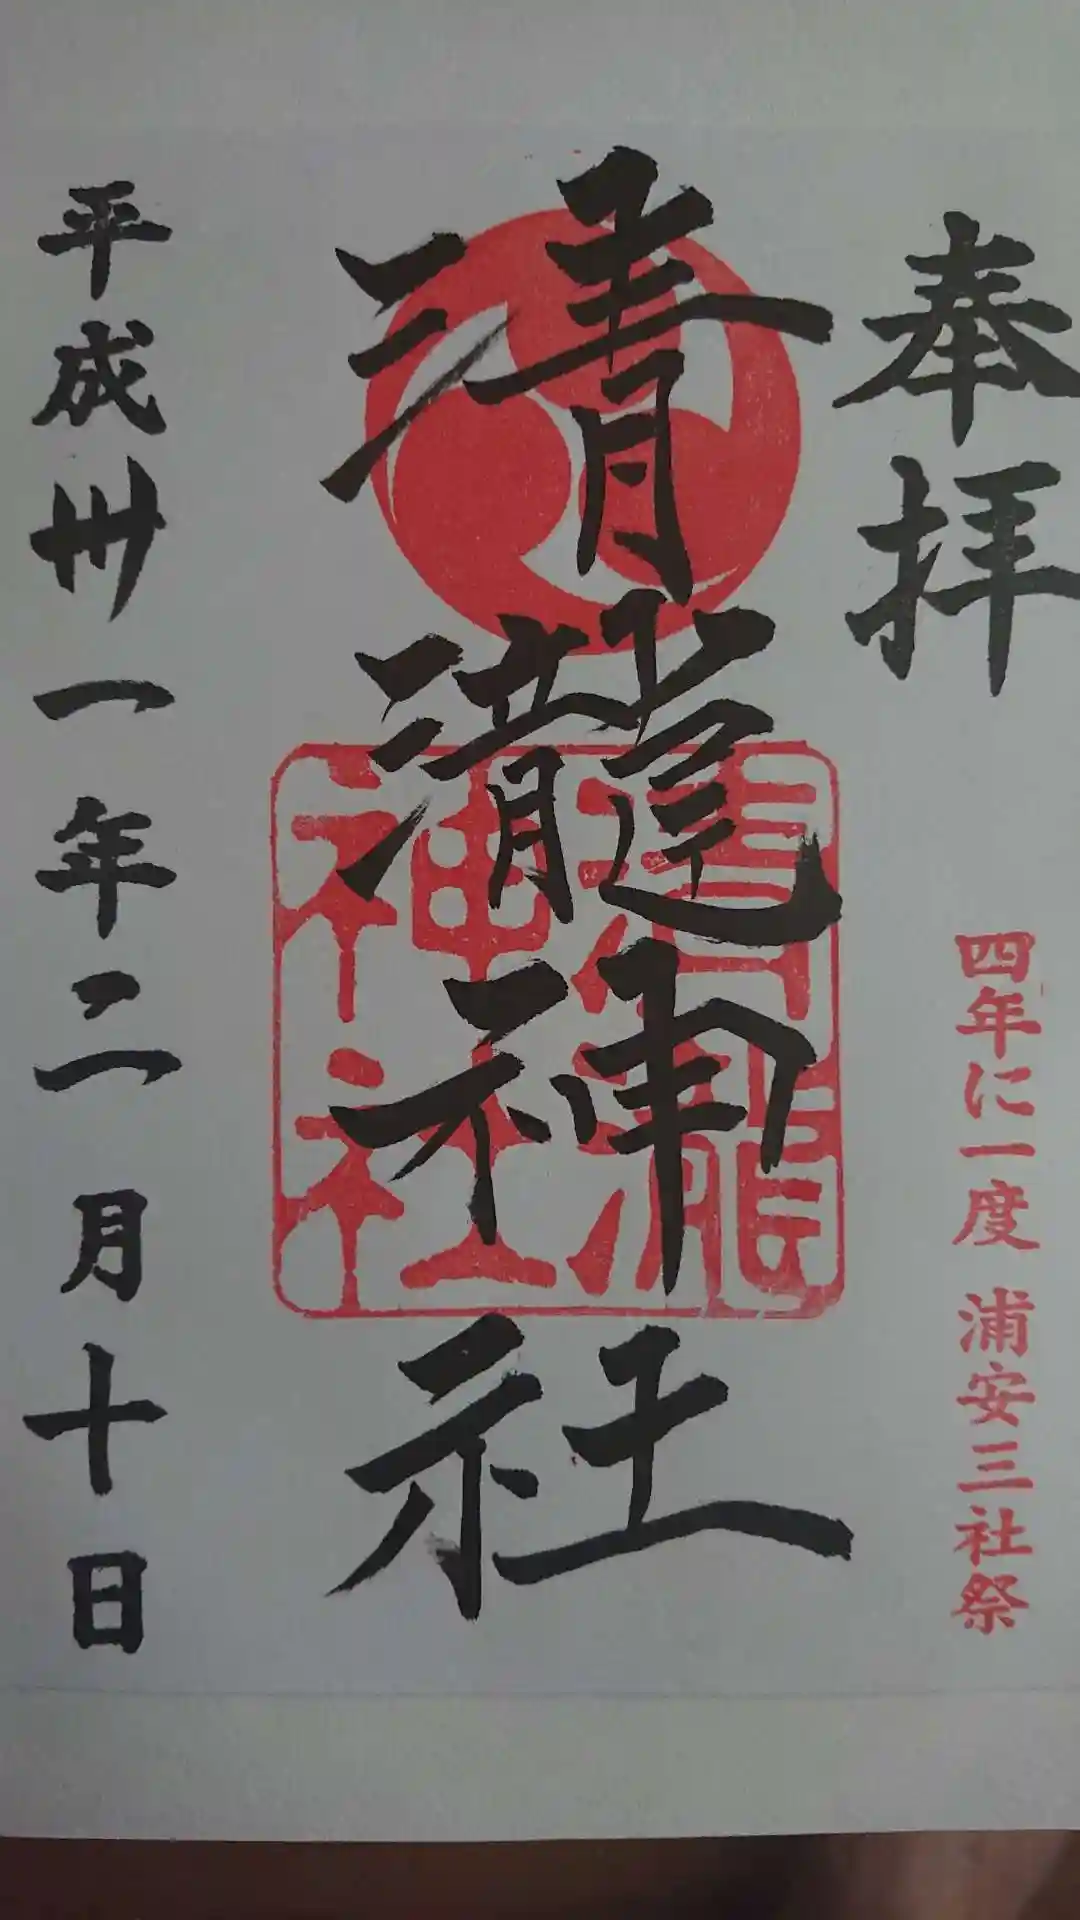 奉拝
四年に一度 浦安三社祭
清瀧神社
清瀧
神社
平成卅一年二月十日